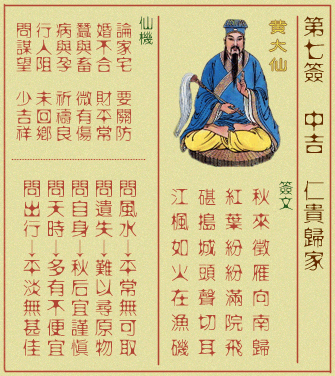 第七簽 中吉 仁貴歸家
黄大仙
簽文
秋來徵雁向南歸
紅葉紛紛滿院飛
砧搗城頭聲切耳
江楓如火在漁磯
仙機
論家宅 要關防
婚不合 財平常
蠶與畜 微有傷
病與孕 祈禱良
行人阻 未回鄉
問謀望 少吉祥
問風水→平常無可取
問遺失→難以尋原物
問自身→秋后宜謹慎
問天時→多有不便宜
問出行→平淡無甚佳